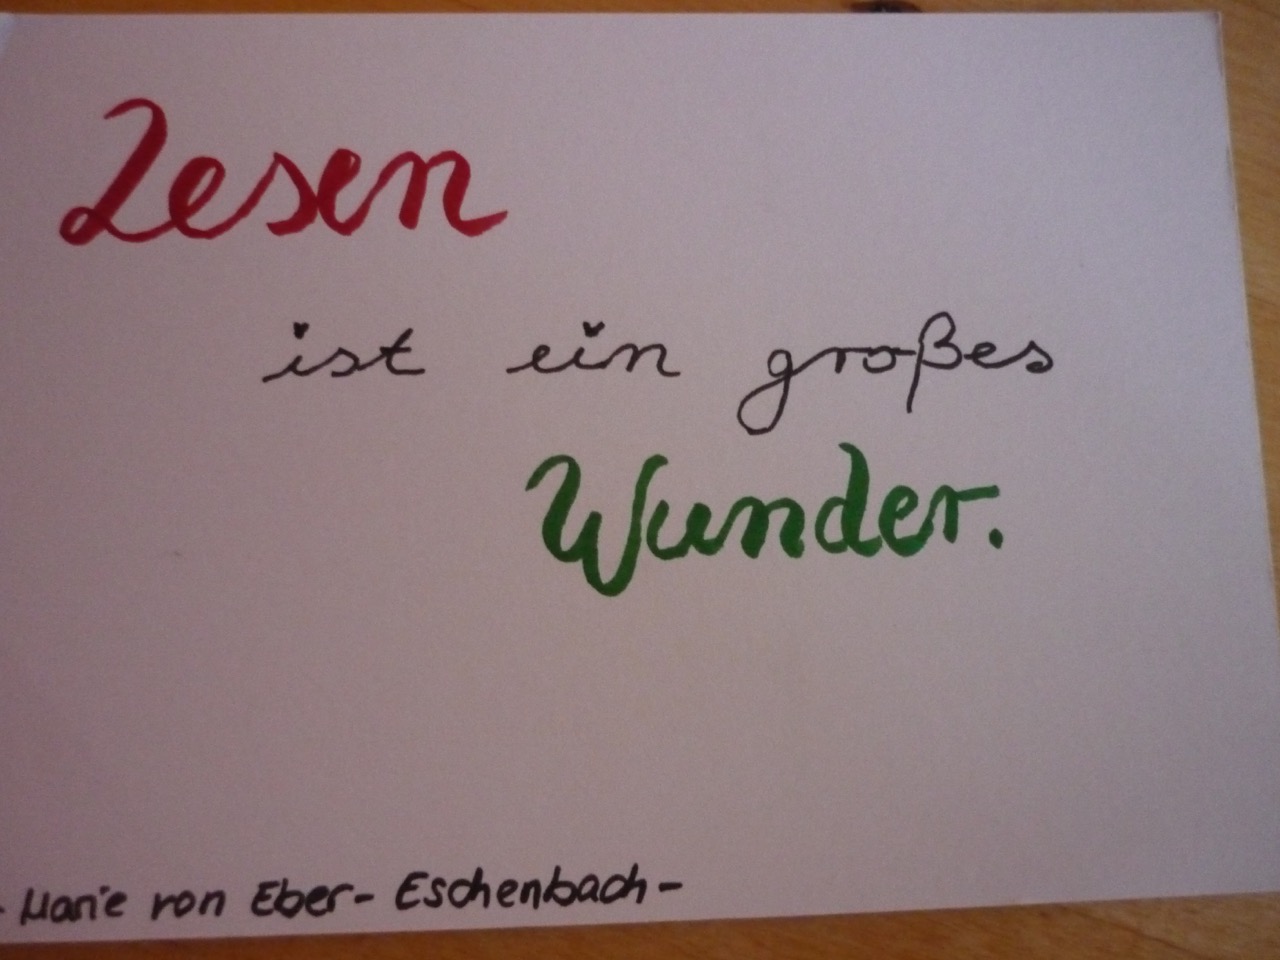 Lesen
ist ein großes
Wunder.
- Marie von Eber- Eschenbach -